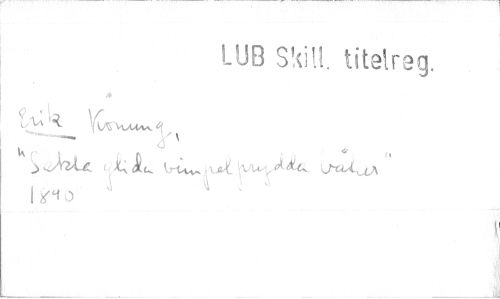 LUB Skill. titelreg.
Erik Konung,
"Sakta glida vimpelprydda båtar"
1890